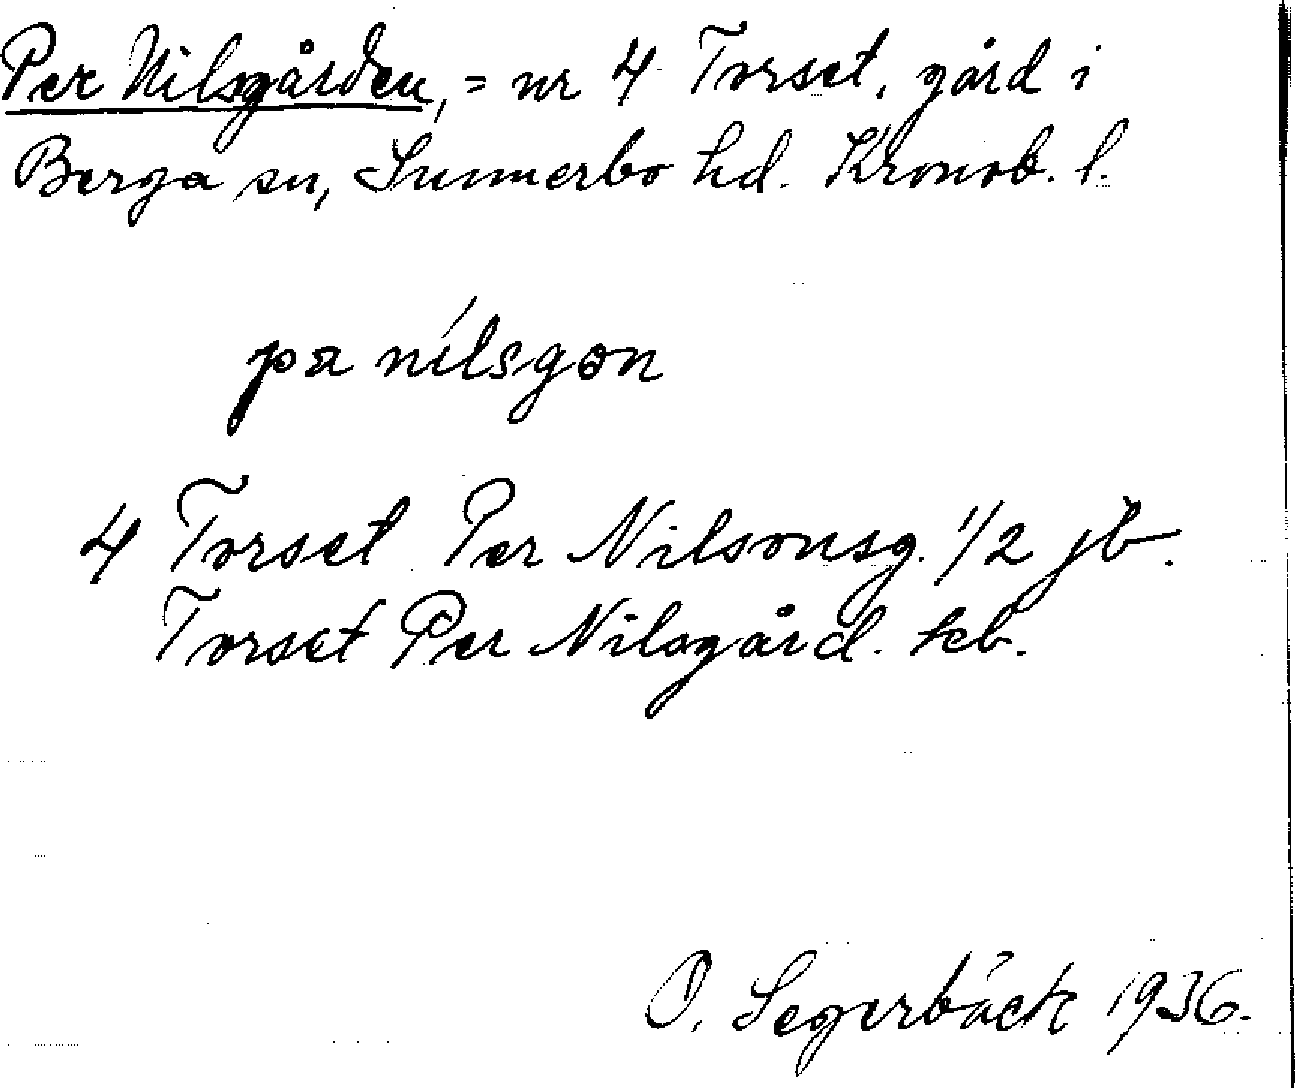 Per Nilsgården, = nr 4 Torset, gård i
Berga sn, Sunnerbo hd. Kronob. l.
pa nilsgon
4 Torset Per Nilsonsg. 1/2 jb.
Torset Per Nilsgård. kb.
O. Segerbäck 1936.